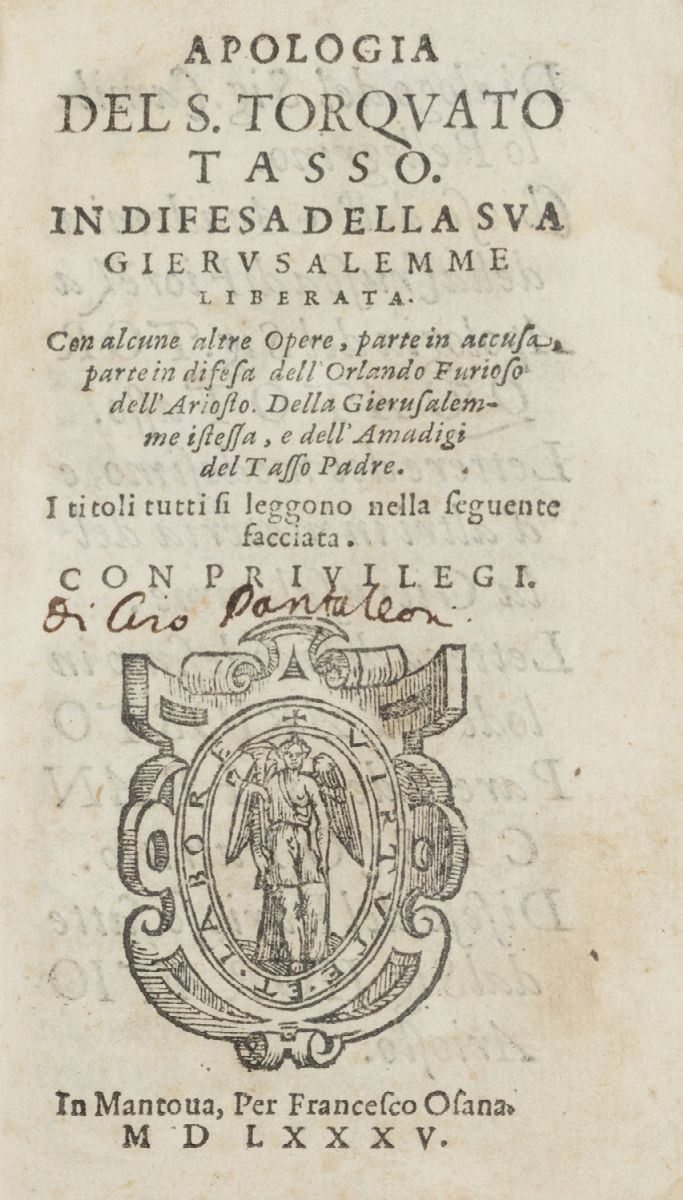 APOLOGIA
DEL S. TORQVATO
TASSO.
IN DIFESA DELLA SVA
GIERVSALEMME
LIBERATA.
Con alcune altre Opere, parte in accuſa,
parte in difeſa dell'Orlando Furioſo
dell'Arioſto. Della Gieruſalem-
me iſteſſa, e dell'Amadigi
del Taſſo Padre.
I titoli tutti ſi leggono nella ſeguente
facciata.
CON PRIVILEGI.
di Ciro Pantaleoni.
VIRTVTE ET LABORE
In Mantoua, Per Franceſco Oſana.
M D LXXXV.